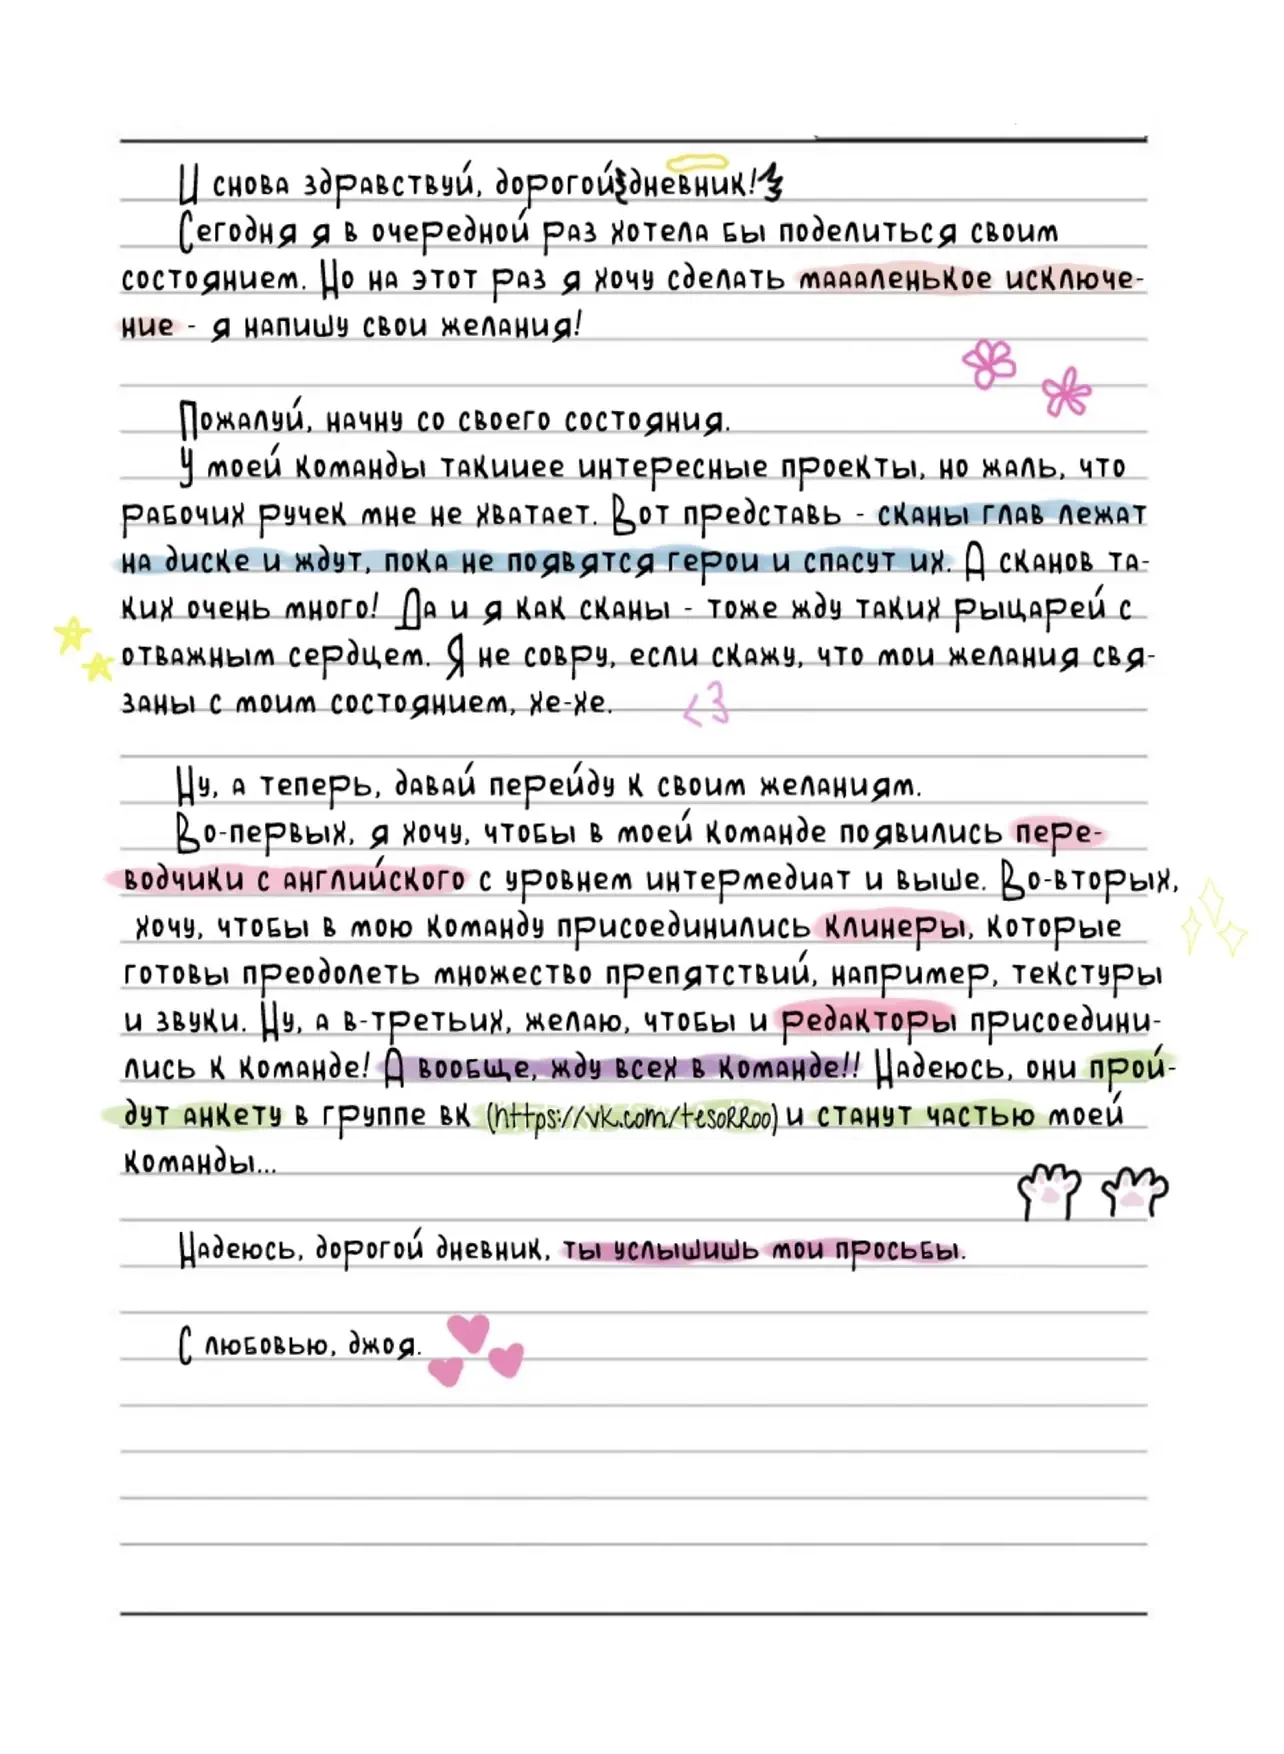 И снова здравствуй, дорогой дневник!
Сегодня я в очередной раз хотела бы поделиться своим
состоянием. Но на этот раз я хочу сделать маааленькое исключе-
ние - я напишу свои желания!
Пожалуй, начну со своего состояния.
У моей команды такииее интересные проекты, но жаль, что
рабочих ручек мне не хватает. Вот представь - сканы глав лежат
на диске и ждут, пока не появятся герои и спасут их. А сканов та-
ких очень много! Да и я как сканы - тоже жду таких рыцарей с
отважным сердцем. Я не совру, если скажу, что мои желания свя-
заны с моим состоянием, хе-хе.
<3
Ну, а теперь, давай перейду к своим желаниям.
Во-первых, я хочу, чтобы в моей команде появились пере-
водчики с английского с уровнем интермедиат и выше. Во-вторых,
хочу, чтобы в мою команду присоединились клинеры, которые
готовы преодолеть множество препятствий, например, текстуры
и звуки. Ну, а в-третьих, желаю, чтобы и редакторы присоедини-
лись к команде! А вообще, жду всех в команде!! Надеюсь, они прой-
дут анкету в группе вк (https://vk.com/tesoRRoo) и станут частью моей
команды...
Надеюсь, дорогой дневник, ты услышишь мои просьбы.
С любовью, джоя.